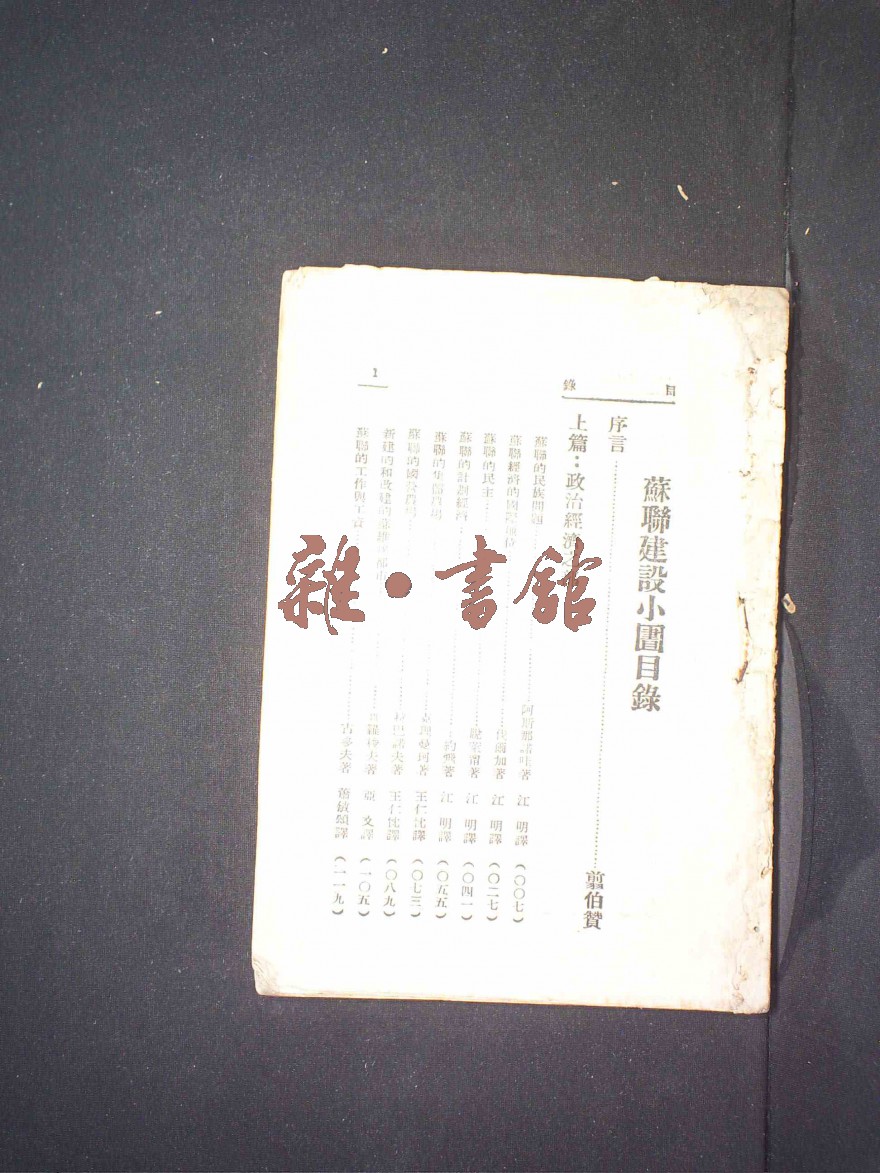 目錄
蘇聯建設小圕目錄
序言 翦伯贊
上篇：政治經濟
蘇聯的民族問題 阿斯 著 江明譯 (〇〇七)
蘇聯經濟的國際地位 爾加著 江明譯 (〇二七)
蘇聯的民主 著 江明譯 (〇四一)
蘇聯的計劃經濟 著 江明譯 (〇五五)
蘇聯的集體農場 著 王仁忱譯 (〇七三)
蘇聯的國營農場 巴諾夫著 王仁忱譯 (〇八九)
新建的和改建的蘇聯 羅 夫著 亞 譯 (一〇五)
蘇聯的工作與工資 古 夫著 蕭敏頌譯 (一一九)
1
雜·書館